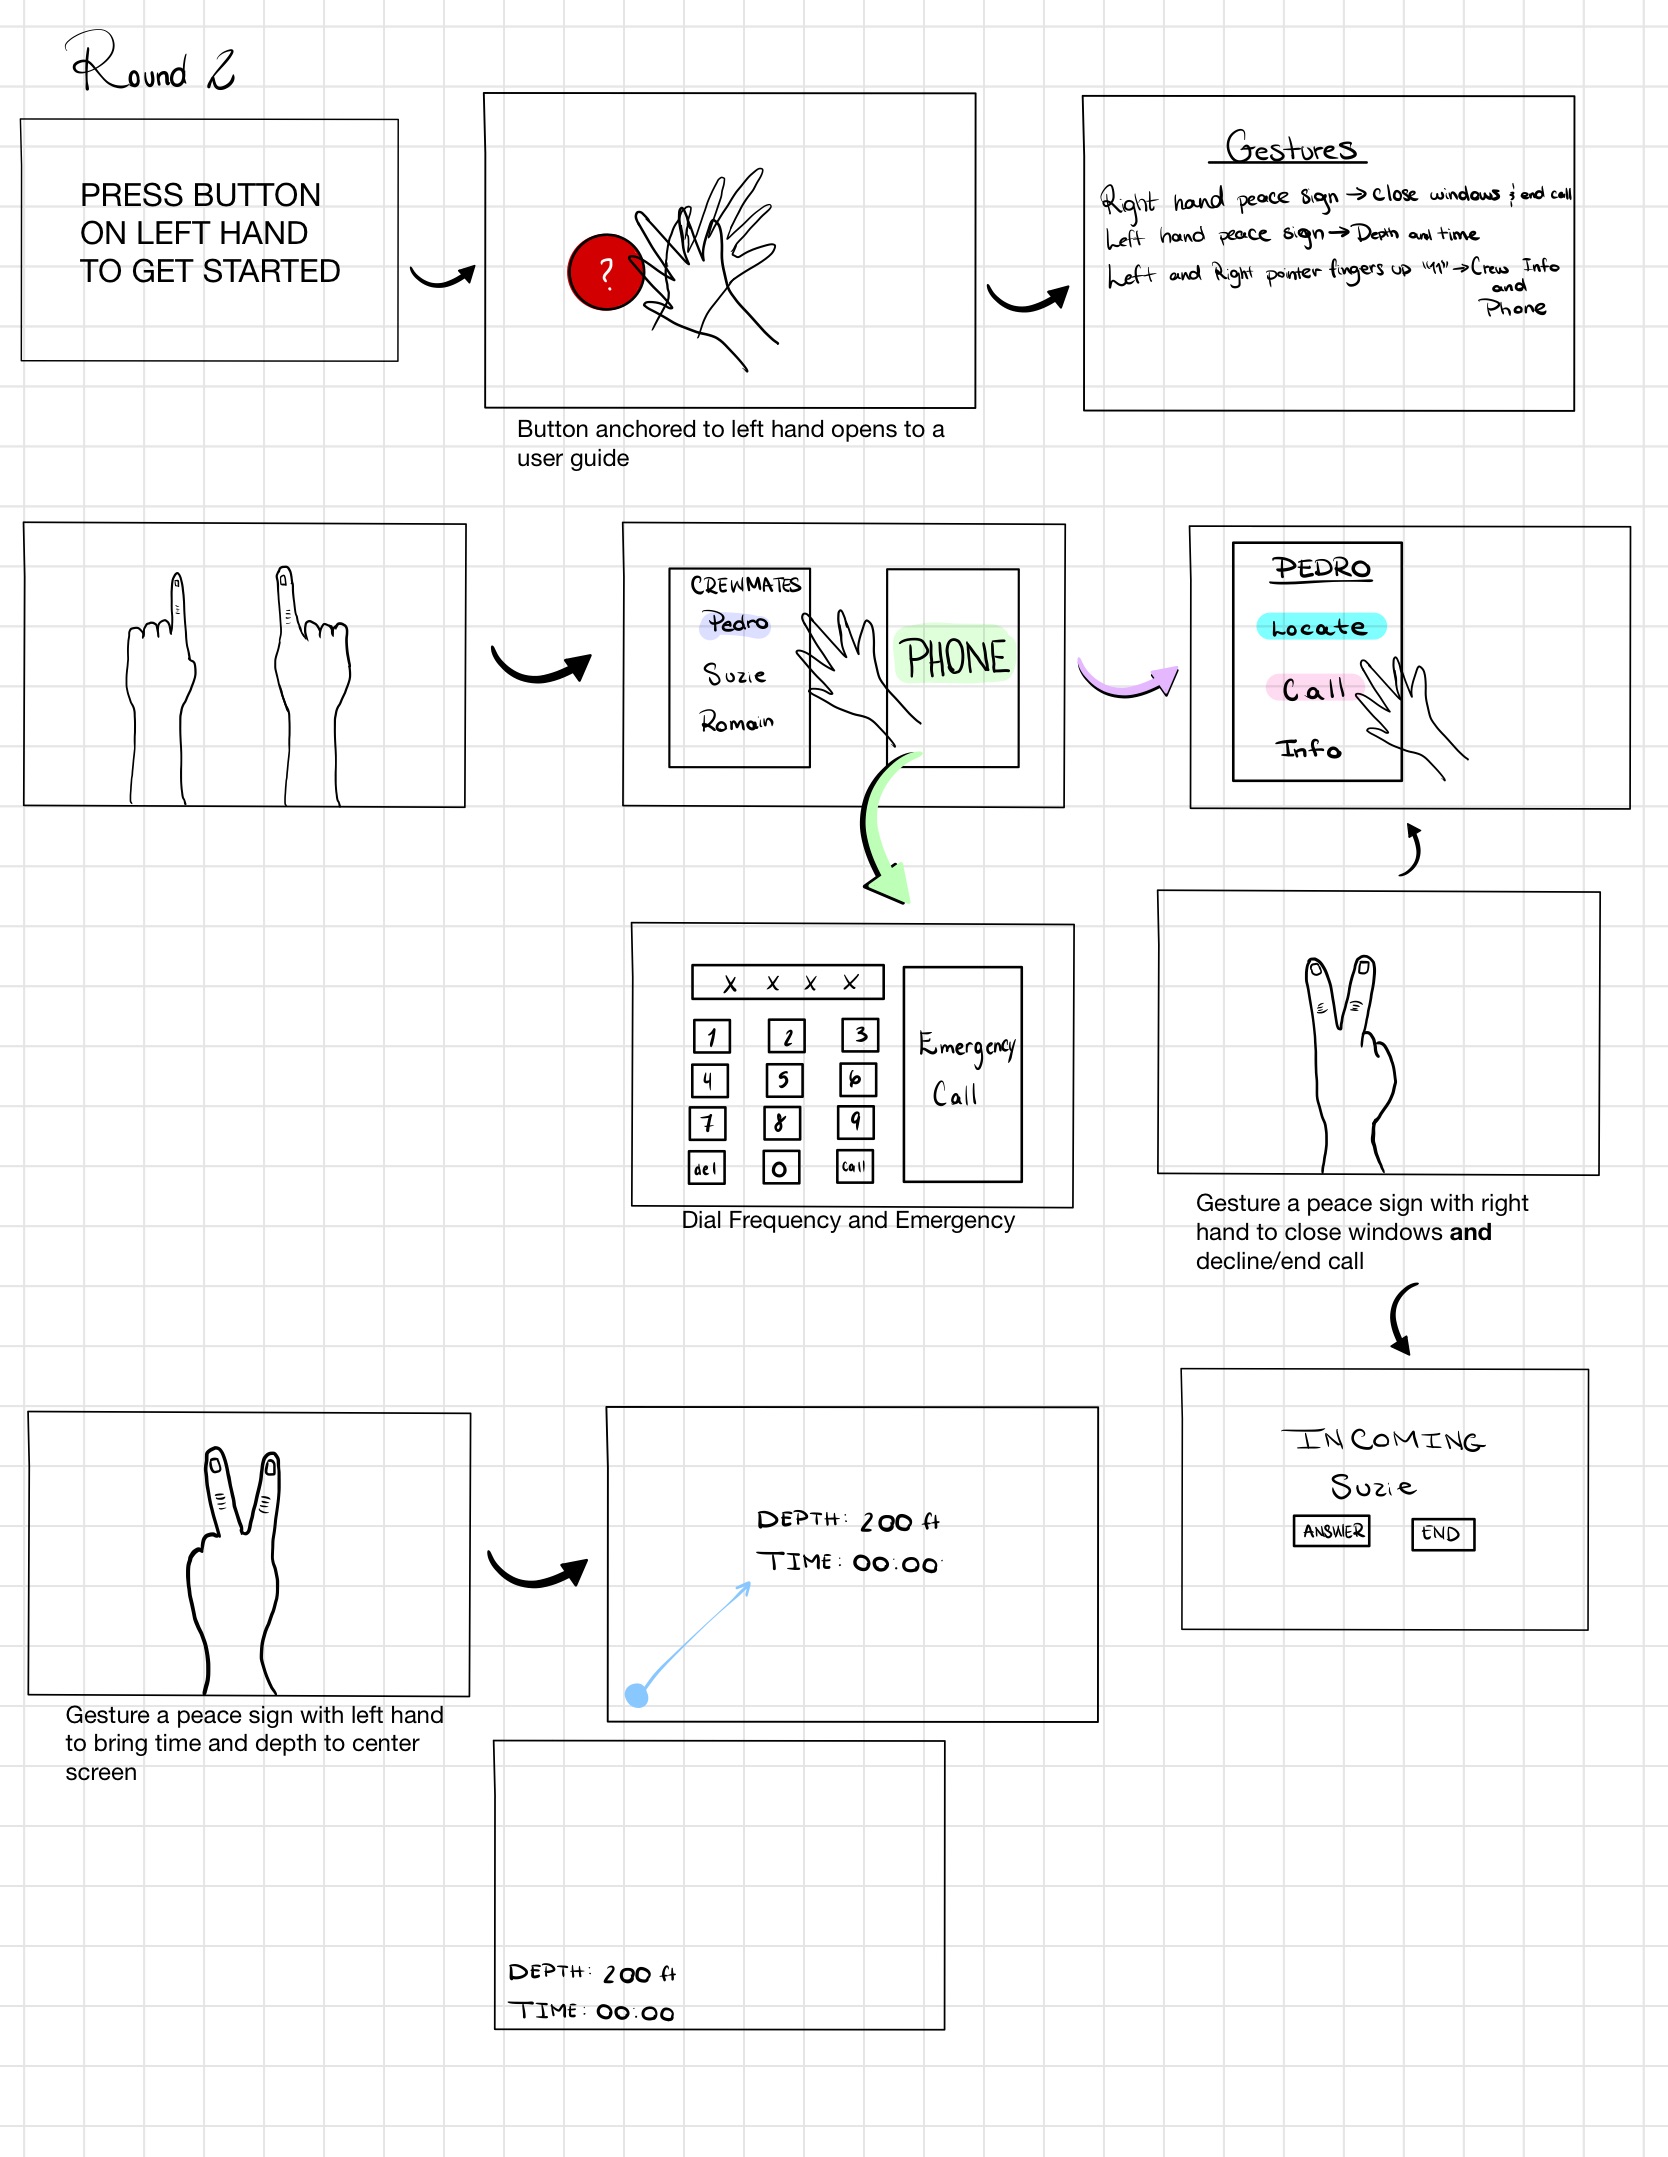 Round 2
PRESS BUTTON
ON LEFT HAND
TO GET STARTED
?
Button anchored to left hand opens to a
user guide
Gestures
Right hand peace sign → Close windows & end call
Left hand peace sign → Depth and time
Left and Right pointer fingers up "11" → Crew Info
and
Phone
CREWMATES
Pedro
Suzie
Romain
PHONE
PEDRO
Locate
Call
Info
X X X X
1 2 3
4 5 6
7 8 9
del 0 call
Emergency
Call
Dial Frequency and Emergency
Gesture a peace sign with right
hand to close windows and
decline/end call
INCOMING
Suzie
ANSWER END
Gesture a peace sign with left hand
to bring time and depth to center
screen
DEPTH: 200 ft
TIME: 00:00
DEPTH: 200 ft
TIME: 00:00